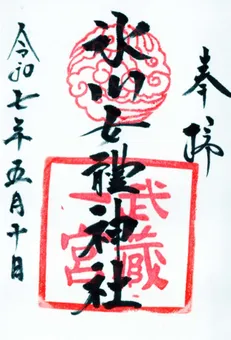 奉拝
氷川女體神社
武蔵一宮
令和七年五月十日